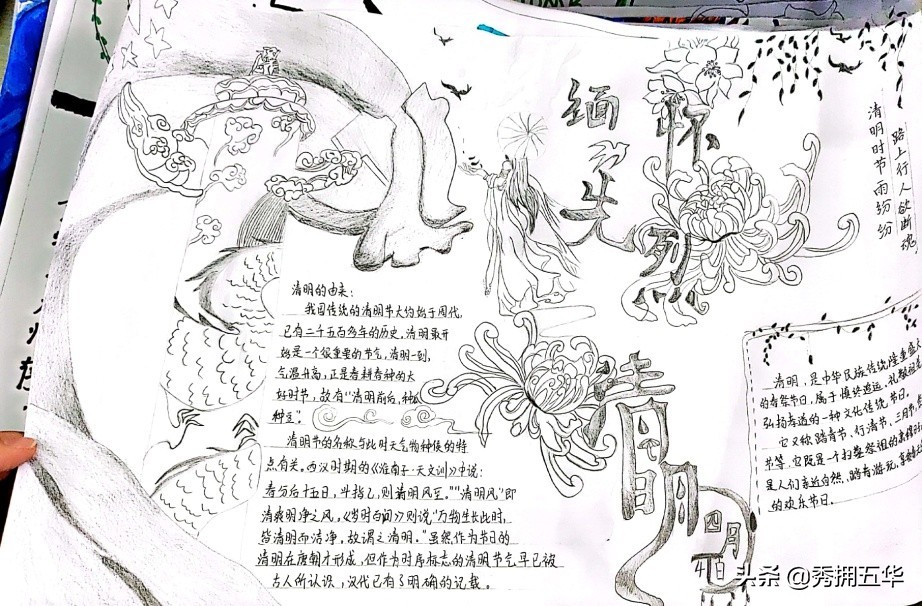 缅怀先烈
清明时节雨纷纷
路上行人欲断魂,
清明的由来:
我国传统的清明节大约始于周代,
已有二千五百多年的历史,清明最开
始是一个很重要的节气,清明一到,
气温升高,正是春耕春种的大
好时节,故有"清明前后,种瓜
种豆"。
清明节的名称与此时天气物种候的特
点有关。西汉时期的《淮南子·天文训》中说:
春分后十五日,斗指乙,则清明风至。""清明风"即
清爽明净之风,《岁时百问》则说"万物生长此时,
皆清明而洁净,故谓之清明。"虽然作为节日的
清明在唐朝才形成,但作为时序标志的清明节气早已被
古人所认识,汉代已有了明确的记载。
清明
四月
4日
清明,是中华民族传统隆重盛大
的春祭节日,属于慎终追远、礼敬祖先
弘扬孝道的一种文化传统节日。
它又称踏青节、行清节、三月节、
节等,它既是一个扫墓祭祖的肃穆节
是人们亲近自然、踏青游玩、享受春
的欢乐节日.
头条 @秀拥五华